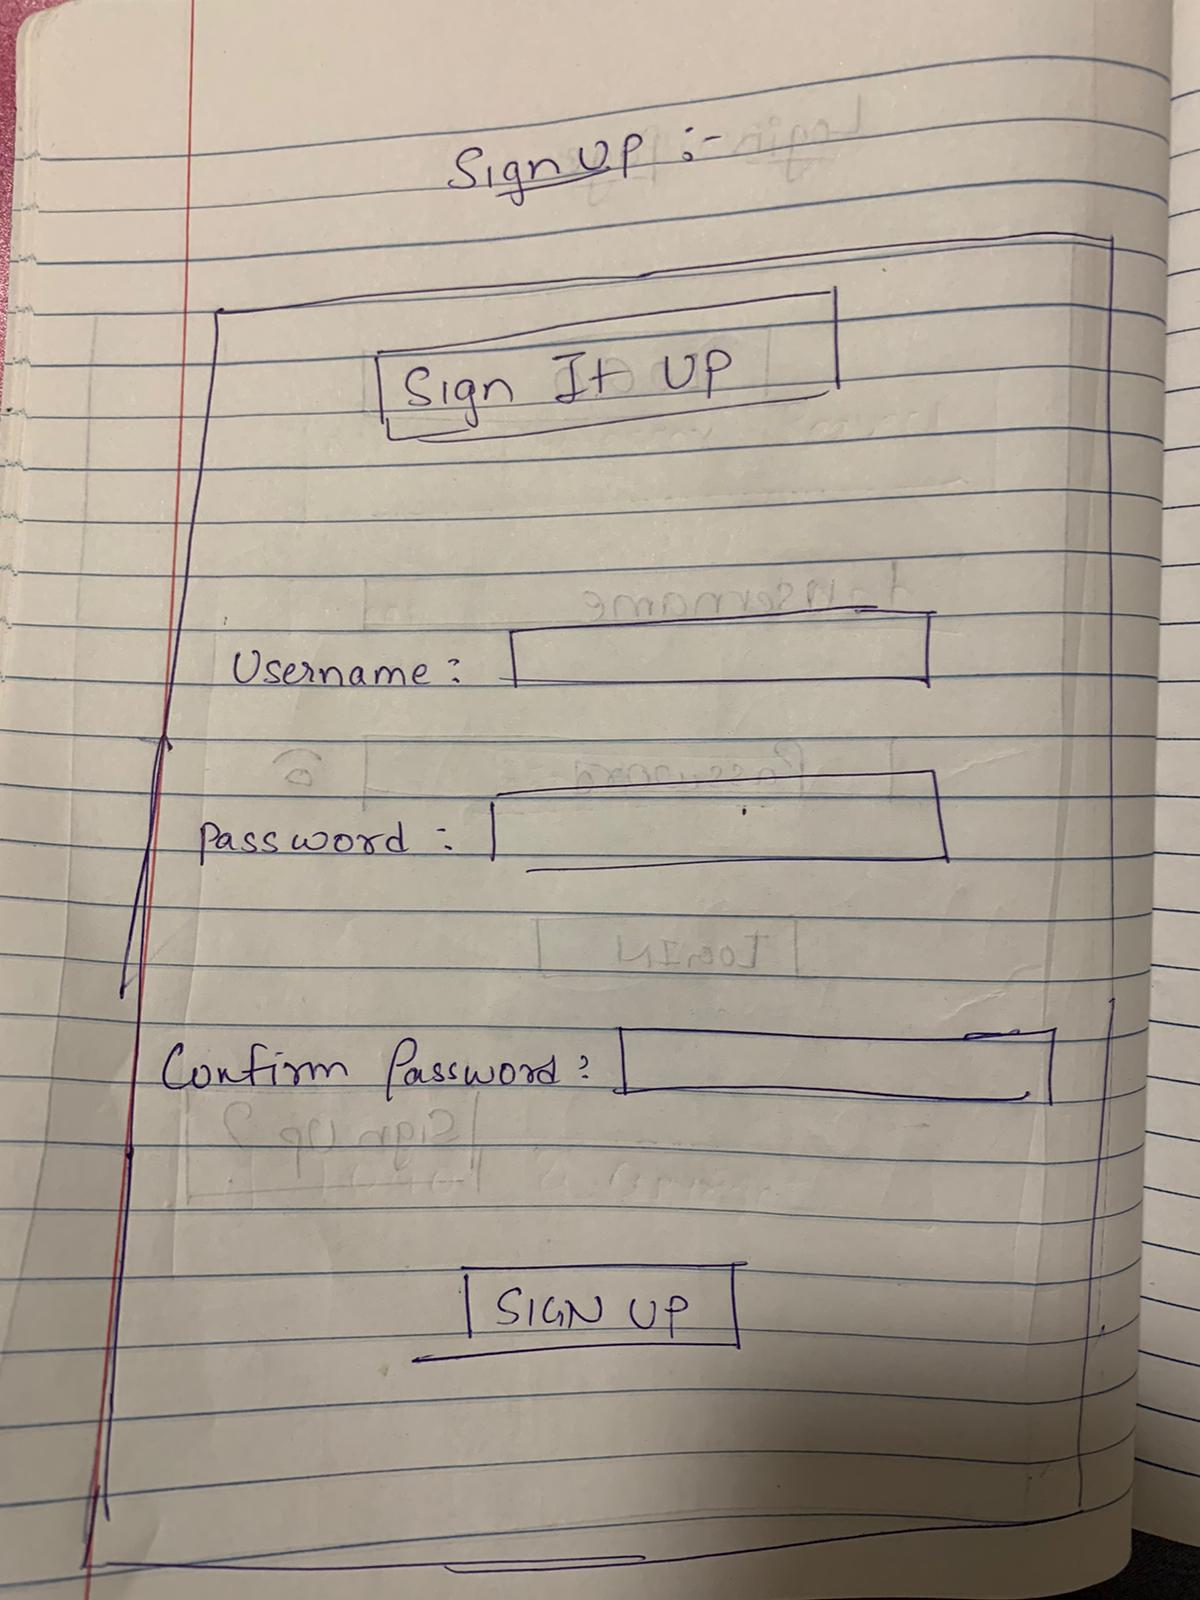 Sign UP :-
Sign It UP
Username :
Password :
Confirm Password :
SIGN UP